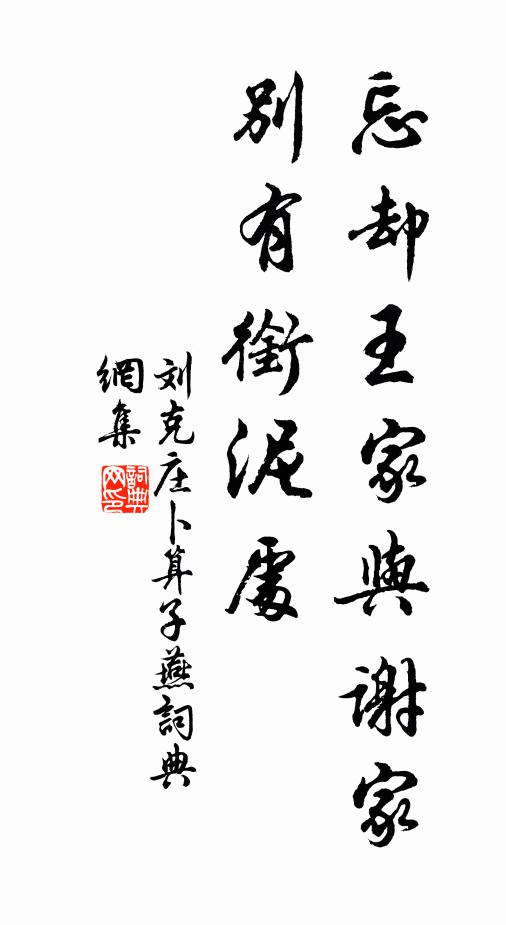 忘却王家與謝家
別有銜泥處
刘克庄卜算子燕詞典
網集
詞典網印